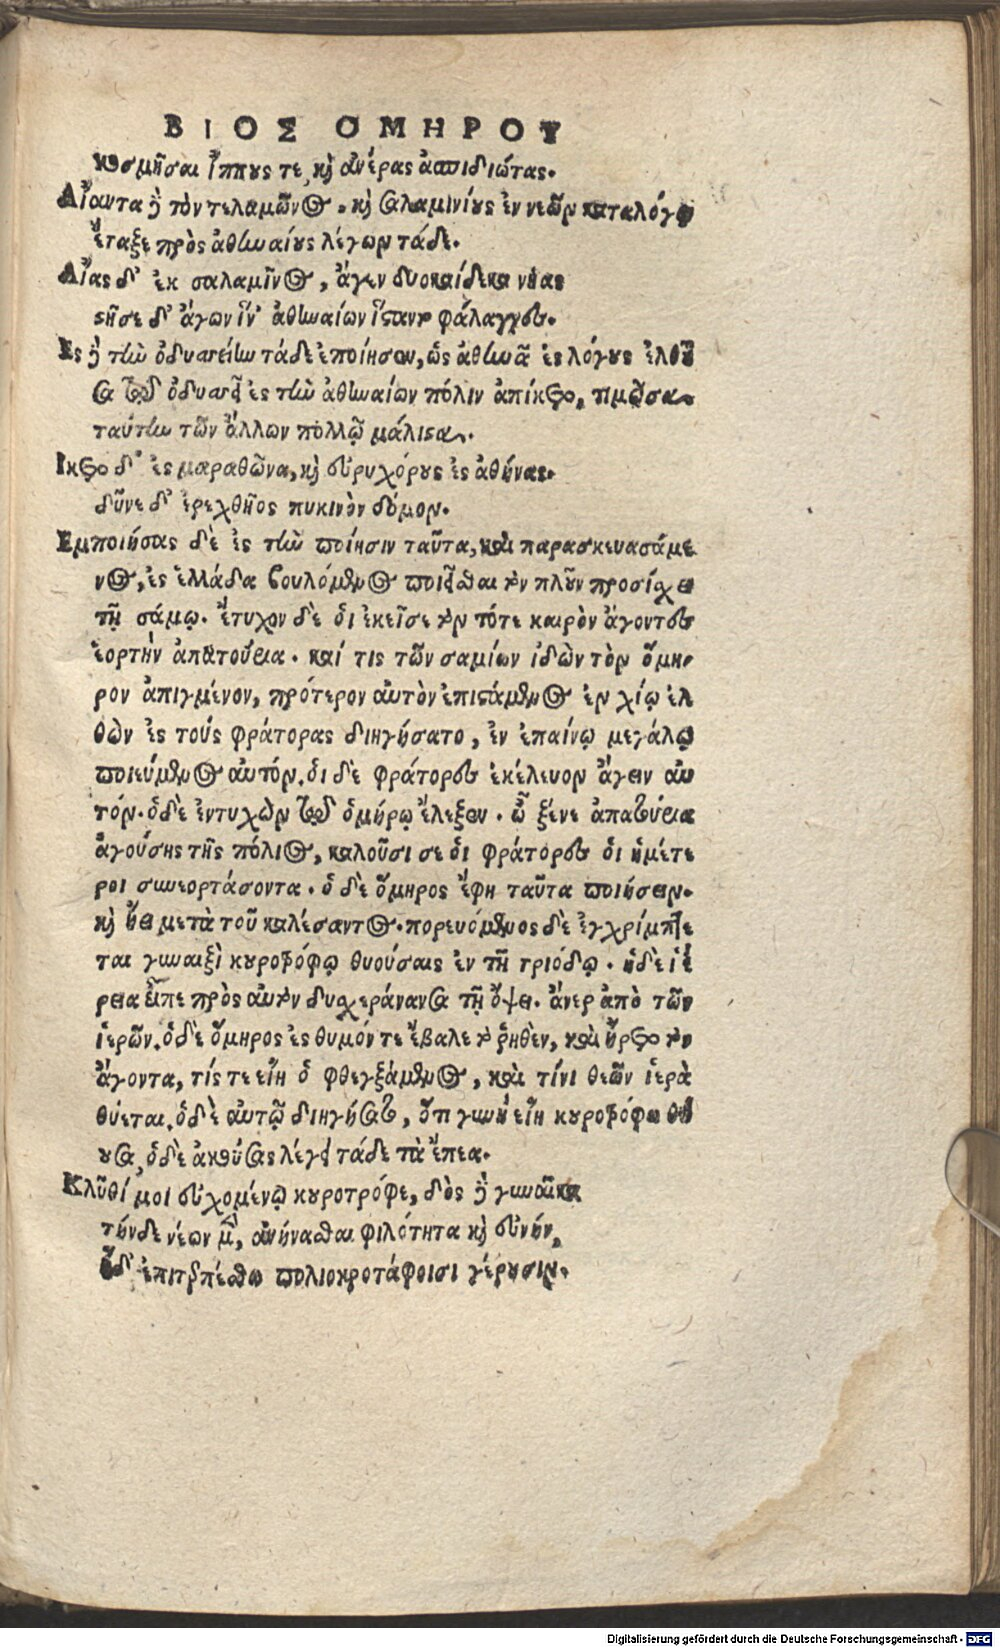 ΒΙΟΣ ΟΜΗΡΟΥ
κοσμῆσαι ἵππους τε καὶ ἀνέρας ἀσπιδιώτας.
Αἴαντα δὲ τὸν τελαμῶνος, καὶ σαλαμινίους ἐν νεῶν καταλόγῳ
ἔταξε πρὸς ἀθηναίους λέγων τάδε.
Αἴας δ' ἐκ σαλαμῖνος, ἄγεν δυοκαίδεκα νῆας
στῆσε δ' ἄγων ἵν' ἀθηναίων ἵσταντο φάλαγγες.
Ες δὲ τὴν ὀδυσσείην τάδε ἐποίησεν, ὡς ἀθηνᾶ ἐς λόγους ἐλθοῦ
σα τῷ ὀδυσσεῖ ἐς τὴν ἀθηναίων πόλιν ἀπίκετο, τιμῶσα
ταύτην τῶν ἄλλων πολλῷ μάλιστα.
Ικετο δ' ἐς μαραθῶνα, καὶ εὐρυχόρους ἐς ἀθήνας.
δῦνε δ' ἐρεχθῆος πυκινὸν δόμον.
Εμποιήσας δὲ ἐς τὴν ποίησιν ταῦτα, καὶ παρασκευασάμε
νος, ἐς ἑλλάδα βουλόμενος ποιεῖσθαι τὸν πλοῦν προσίχει
τῇ σάμῳ. ἔτυχον δὲ ὁι ἐκεῖσε τὸν τότε καιρὸν ἄγοντες
ἑορτὴν ἀπατούρια. καί τις τῶν σαμίων ἰδὼν τὸν ὅμη
ρον ἀπιγμένον, πρότερον αὐτὸν ἐπιστάμενος ἐν χίῳ ἐλ
θὼν ἐς τοὺς φράτορας διηγήσατο, ἐν ἐπαίνῳ μεγάλῳ
ποιεύμενος αὐτόν. ὁι δὲ φράτορες ἐκέλευον ἄγειν αὐ
τόν. ὁδὲ ἐντυχὼν τῷ ὁμήρῳ ἔλεξεν. ὦ ξένε ἀπατούρια
ἀγούσης τῆς πόλιος, καλοῦσι σε ὁι φράτορες ὁι ἡμέτε
ροι συνεορτάσοντα. ὁ δὲ ὅμηρος ἔφη ταῦτα ποιήσειν.
καὶ ᾔει μετὰ τοῦ καλέσαντος. πορευόμενος δὲ ἐγχρίμπτε
ται γυναιξὶ κουροτρόφῳ θυούσαις ἐν τῇ τριόδῳ. ἡδὲ ἱέ
ρεια εἶπε πρὸς αὐτὸν δυσχεράνασα τῇ ὄψει. ἄνερ ἀπὸ τῶν
ἱερῶν. ὁδὲ ὅμηρος ἐς θυμόν τε ἔβαλε τὸ ῥηθὲν, καὶ ἤρετο τὸν
ἄγοντα, τίς τε εἴη ὁ φθεγξάμενος, καὶ τίνι θεῶν ἱερὰ
θύεται. ὁδὲ αὐτῷ διηγήσατο, ὅτι γυνὴ εἴη κουροτρόφῳ θύ
ουσα, ὁδὲ ἀκούσας λέγει τάδε τὰ ἔπεα.
Κλῦθί μοι εὐχομένῳ κουροτρόφε, δὸς δὲ γυναῖκα
τήνδε νέων μὲν, ἀνήνασθαι φιλότητα καὶ εὐνήν,
ἡδ' ἐπιτερπέσθω πολιοκροτάφοισι γέρουσιν.
Digitalisierung gefördert durch die Deutsche Forschungsgemeinschaft - DFG